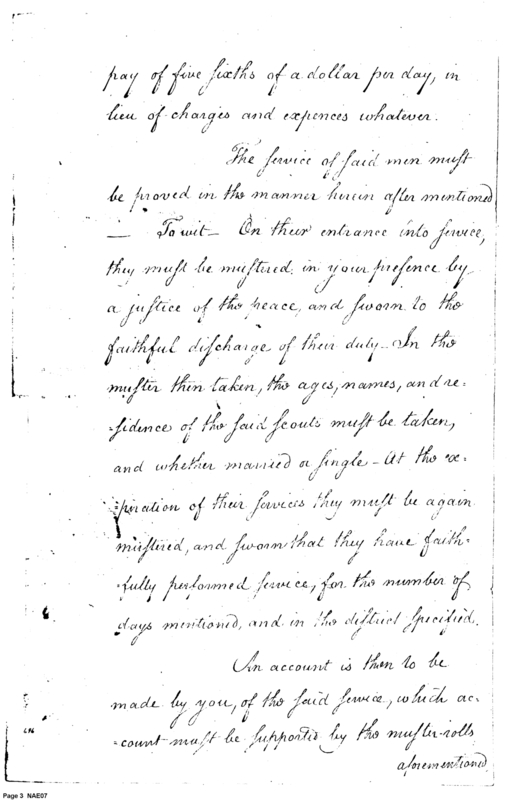 pay of five sixths of a dollar per day, in
lieu of charges and expences whatever.
The service of said men must
be proved in the manner herein after mentioned
— To wit — On their entrance into service,
they must be mustered in your presence by
a justice of the peace, and sworn to the
faithful discharge of their duty — In the
muster then taken, the ages, names, and re-
=sidence of the said scouts must be taken,
and whether married or single — At the ex-
=piration of their services they must be again
mustered, and sworn that they have faith-
-fully performed service, for the number of
days mentioned, and in the district specified.
An account is then to be
made by you, of the said service, which ac-
=count must be supported by the muster-rolls
aforementioned
Page 3 NAE07